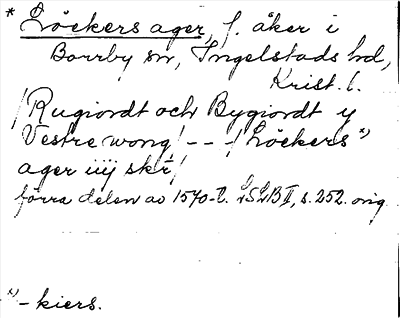 * Löckers ager, f. åker i
Borrby sn, Ingelstads hd,
Krist. l.
/Rugiordt och Bygiordt y
Vestre wong/ - - /Löckers x)
ager iiij skr̄/
förra delen av 1570-t. LSLB II, s. 252. orig.
x) - kiers.